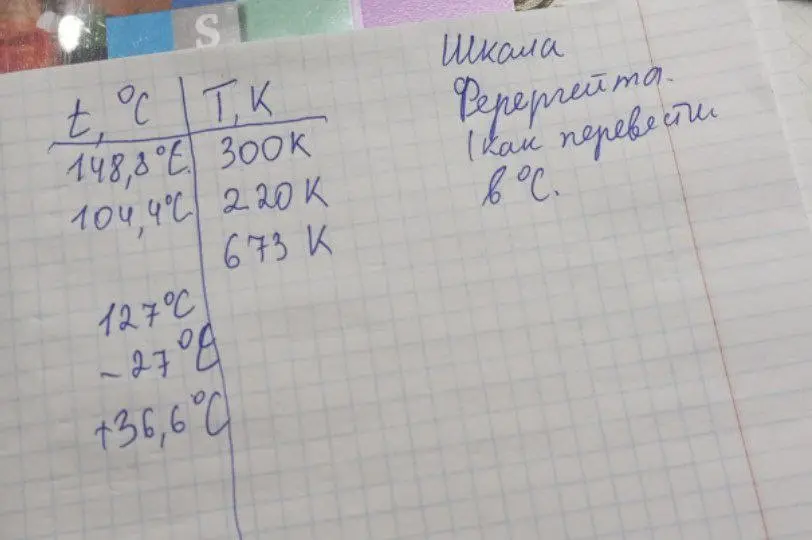 S
t, °C T, K
148,8°C 300K
104,4°C 220K
673 K
127°C
-27°C
+36,6°C
Шкала
Ферергейта.
(как перевести
в °C.